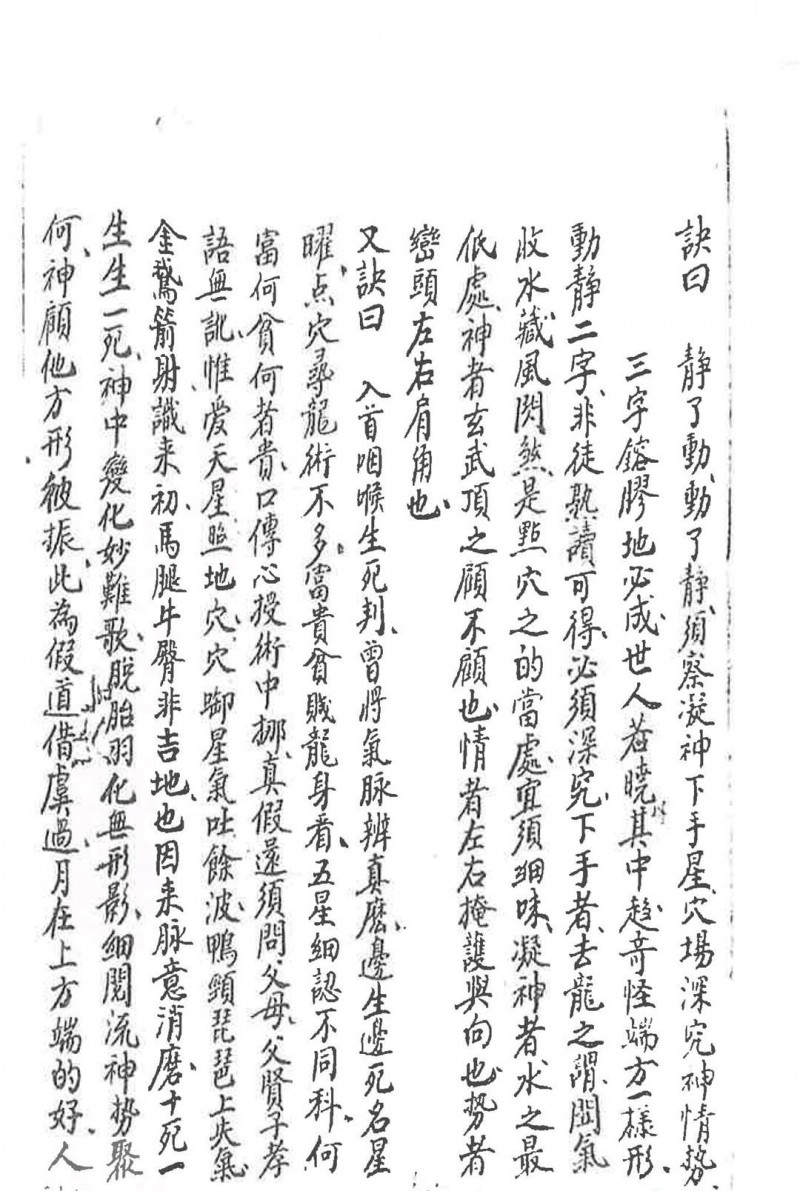 訣曰　靜了動、動了靜、須察凝神下手星、穴場深究神情勢
三字鎔膠地必成、世人若曉其中趣、奇怪端方一樣形、
動靜二字、非徒熟讀可得、必須深究、下手者、去龍之謂、閉氣
收水藏風閃煞、是點穴之的當處、宜須細味、凝神者、水之最
低處、神者玄武頂之顧不顧也、情者左右掩護與向也、勢者
巒頭左右肩角也、
又訣曰　入首咽喉生死判、曾將氣脉辨真麽、邊生邊死名星
曜、点穴尋龍術不多、富貴貧賤龍身看、五星細認不同科、何
富何貧何者貴、口傳心授術中挪、真假還須問父母、父賢子孝
語無訛、惟愛天星照地穴、穴啣星氣吐餘波、鴨頸琵琶上失氣
金鵞箭射識來初、馬腿牛臀非吉地、也因来脉意消磨、十死一
生生一死、神中變化妙難歌、脫胎羽化無形影、細閱流神勢聚
何、神顧他方形被振、此為假道借虞過、月在上方端的好、人